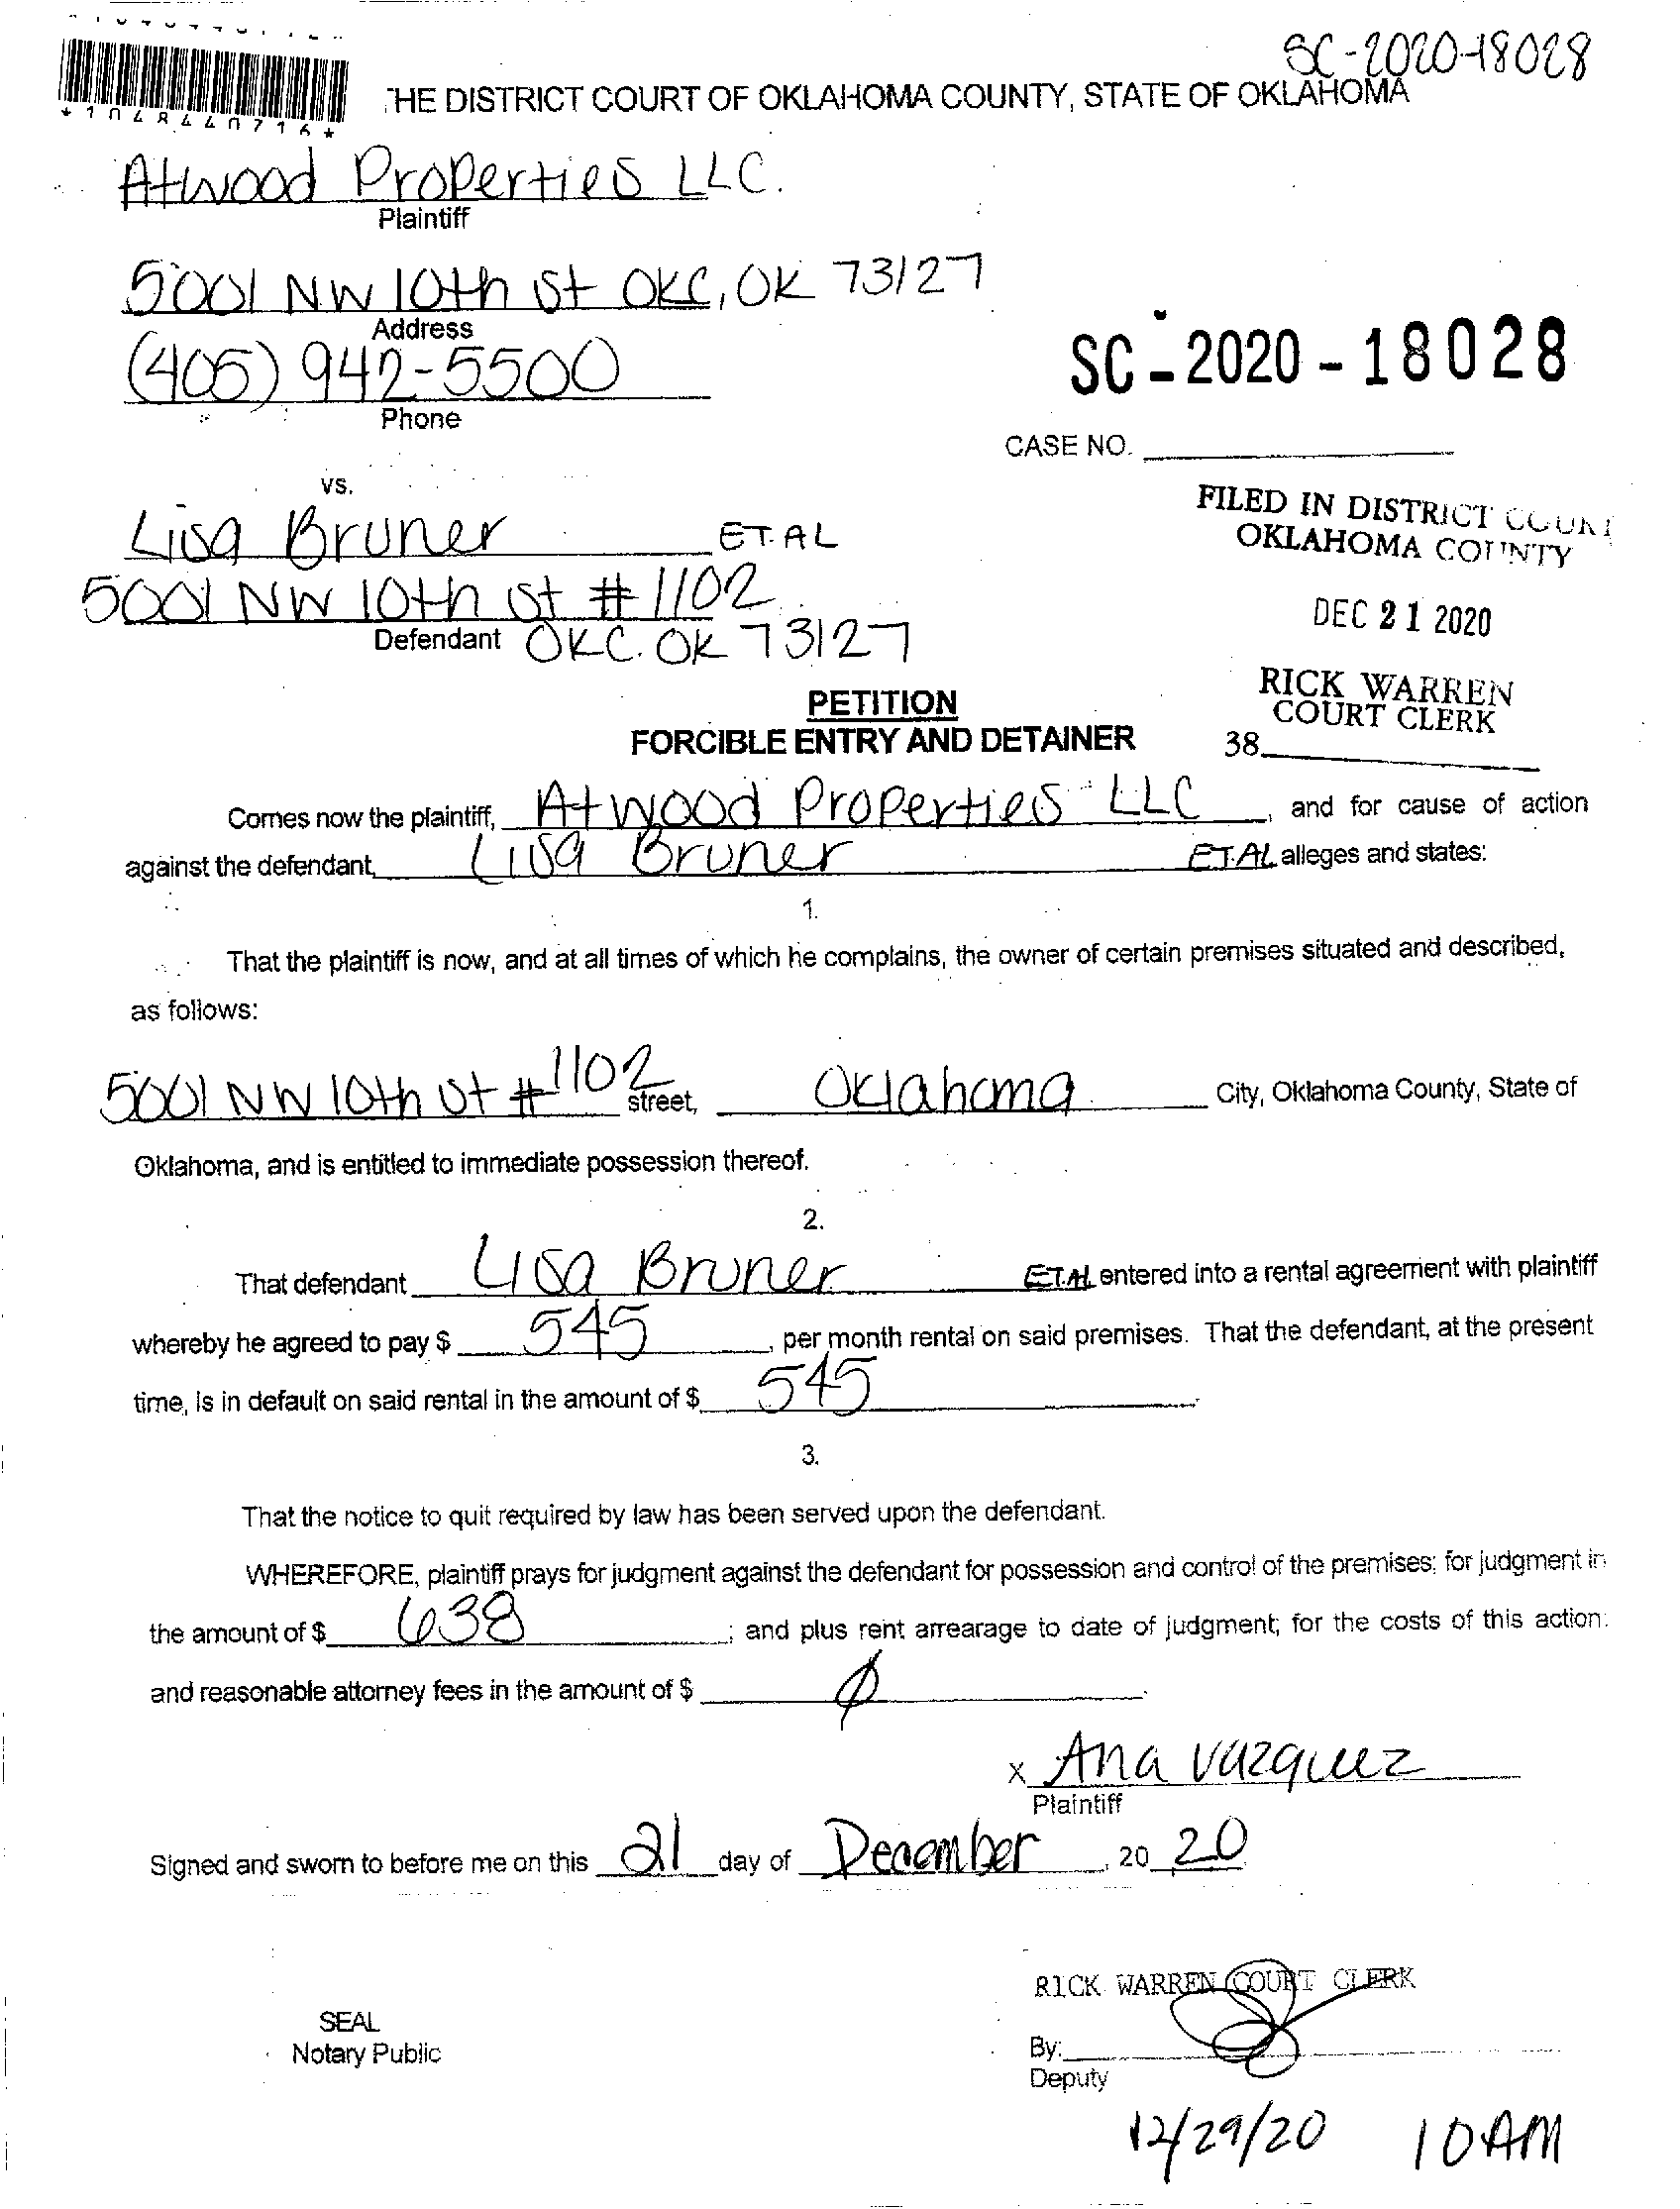 SC-2020-18028
*1048440716*
THE DISTRICT COURT OF OKLAHOMA COUNTY, STATE OF OKLAHOMA
Atwood Properties LLC.
Plaintiff
5001 NW 10th St OKC, OK 73127
Address
(405) 942-5500
Phone
SC-2020-18028
CASE NO.
vs.
Lisa Bruner ET.AL
5001 NW 10th St # 1102
Defendant OKC. OK 73127
FILED IN DISTRICT COURT
OKLAHOMA COUNTY
DEC 21 2020
RICK WARREN
COURT CLERK
38
PETITION
FORCIBLE ENTRY AND DETAINER
Comes now the plaintiff, Atwood Properties LLC, and for cause of action
against the defendant, Lisa Bruner ET.AL alleges and states:
1.
That the plaintiff is now, and at all times of which he complains, the owner of certain premises situated and described,
as follows:
5001 NW 10th St # 1102 street, Oklahoma City, Oklahoma County, State of
Oklahoma, and is entitled to immediate possession thereof.
2.
That defendant Lisa Bruner ET.AL entered into a rental agreement with plaintiff
whereby he agreed to pay $ 545, per month rental on said premises. That the defendant, at the present
time, is in default on said rental in the amount of $ 545.
3.
That the notice to quit required by law has been served upon the defendant.
WHEREFORE, plaintiff prays for judgment against the defendant for possession and control of the premises; for judgment in
the amount of $ 638; and plus rent arrearage to date of judgment; for the costs of this action:
and reasonable attorney fees in the amount of $ ∅.
x Ana Vazquez
Plaintiff
Signed and sworn to before me on this 21 day of December, 20 20
RICK WARREN COURT CLERK
SEAL
Notary Public
By:
Deputy
12/29/20 10AM